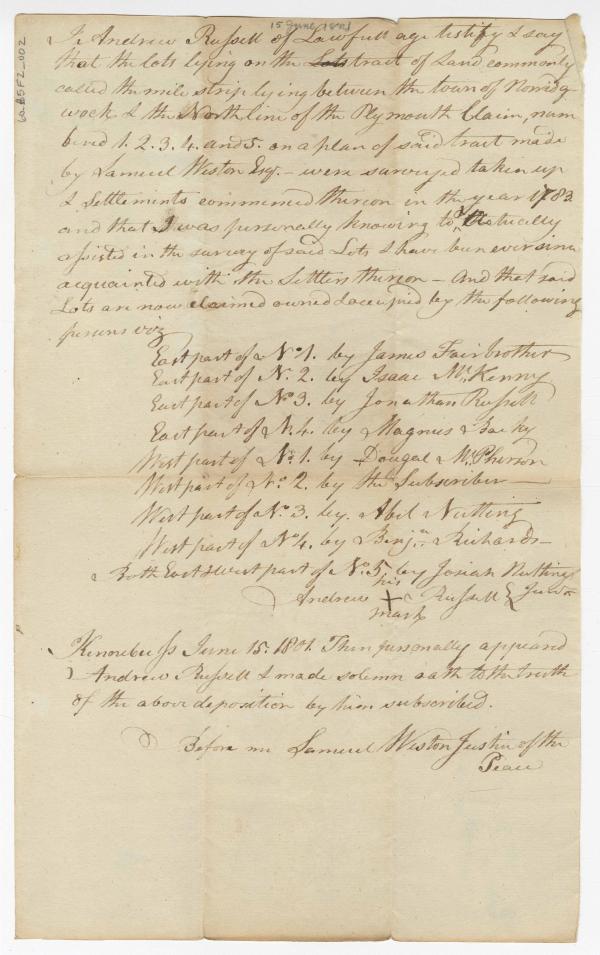 15 June 1801
6a.B5F2_002
I Andrew Russell of Lawfull age testify & say
that the lots lying on the Lots tract of Land commonly
called the mile strip lying between the town of Norridg
wock & the North line of the Plymouth Claim, num
bered 1. 2. 3. 4. and 5. on a plan of said tract made
by Samuel Weston Esqr. - were surveyed taken up
& Settlements commenced thereon in the year 1783
and that I was personally knowing to & Actually
assisted in the survey of said Lots & have been ever since
acquainted with the Settlers thereon - And that said
Lots are now claimed owned & occupied by the following
persons viz
East part of No. 1. by James Fairbrother
East part of N. 2. by Isaac Mc. Kenny
East part of No 3. by Jonathan Russell
East part of N. 4. by Magnus Backy
West part of No. 1 by Dougal Mc. Pherson
West part of No 2. by the Subscriber -
West part of No. 3. by. Abel Nutting
West part of No 4. by Benjn. Richards -
Both East & West part of No. 5 by Josiah Nutting
his
Andrew + Russell
mark
Kennebec Ss June 15. 1801. Then personally appeared
Andrew Russell & made solemn oath to the truth
of the above deposition by him subscribed.
Before me Samuel Weston Justice of the
Peace